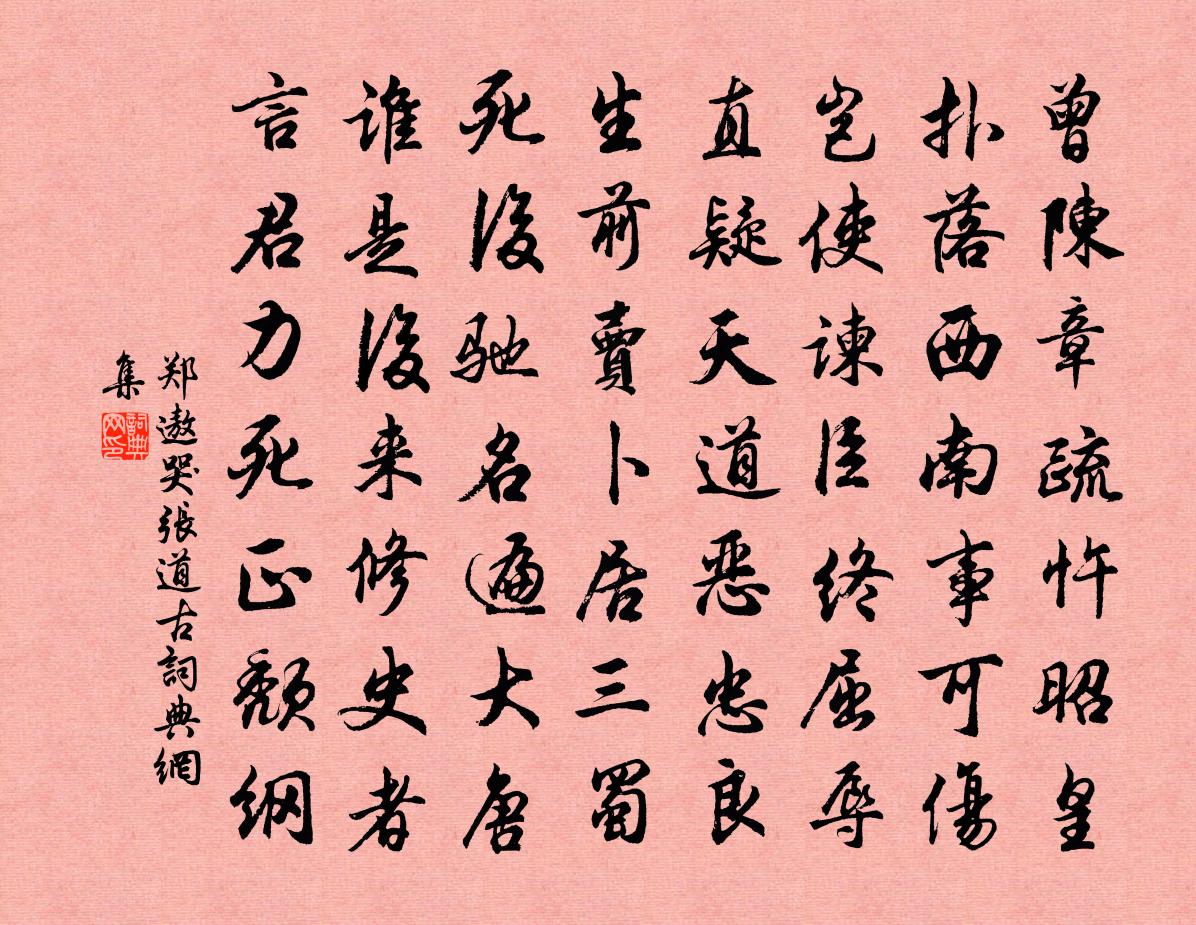 曾陳章疏忤昭皇
扑落西南事可傷
豈使諫臣終屈辱
直疑天道惡忠良
生前賣卜居三蜀
死後馳名遍大唐
谁是後来修史者
言君力死正頹綱
郑遨哭張道古詞典網
集
詞典网印